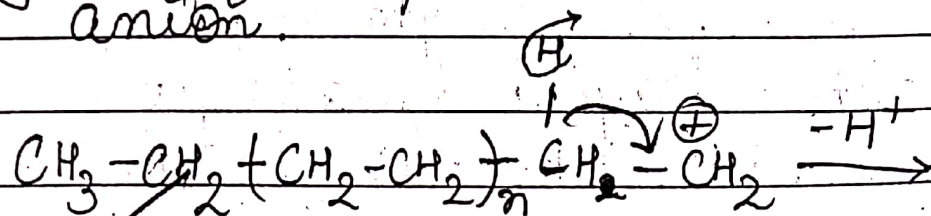 anion.
H
CH₃-CH₂(CH₂-CH₂)ₙ-CH₂-CH₂ ⊕ -H⁺ →